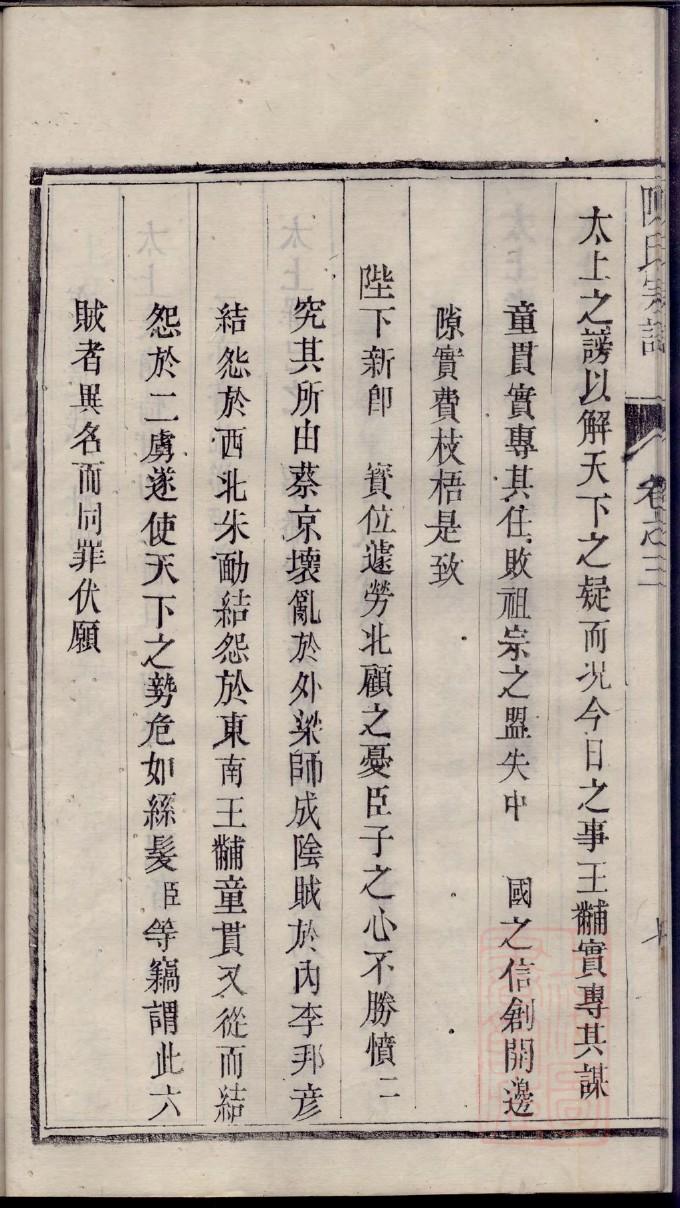 陳氏宗譜
卷之三
太上之謗以解天下之疑而况今日之事王黼實專其謀
童貫實專其任敗祖宗之盟失中 國之信創開邊
隙實費枝梧是致
陛下新卽 寳位遽勞北顧之憂臣子之心不勝憤二
究其所由蔡京壞亂於外梁師成陰賊於內李邦彦
結怨於西北朱勔結怨於東南王黼童貫又從而結
怨於二虜遂使天下之勢危如絲髮臣等竊謂此六
賊者異名而同罪伏願